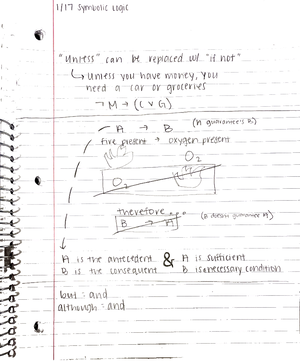 1/17 Symbolic Logic
"Unless" can be replaced w/ "if not"
↳ Unless you have money, you
need a car or groceries
¬M → (C ∨ G)
A → B (A guarantee's B)
fire present → oxygen present
O₂
O₂
therefore
B → A (B doesn't guarantee A)
A is the antecedent & A is sufficient
B is the consequent B is necessary condition
but = and
although = and